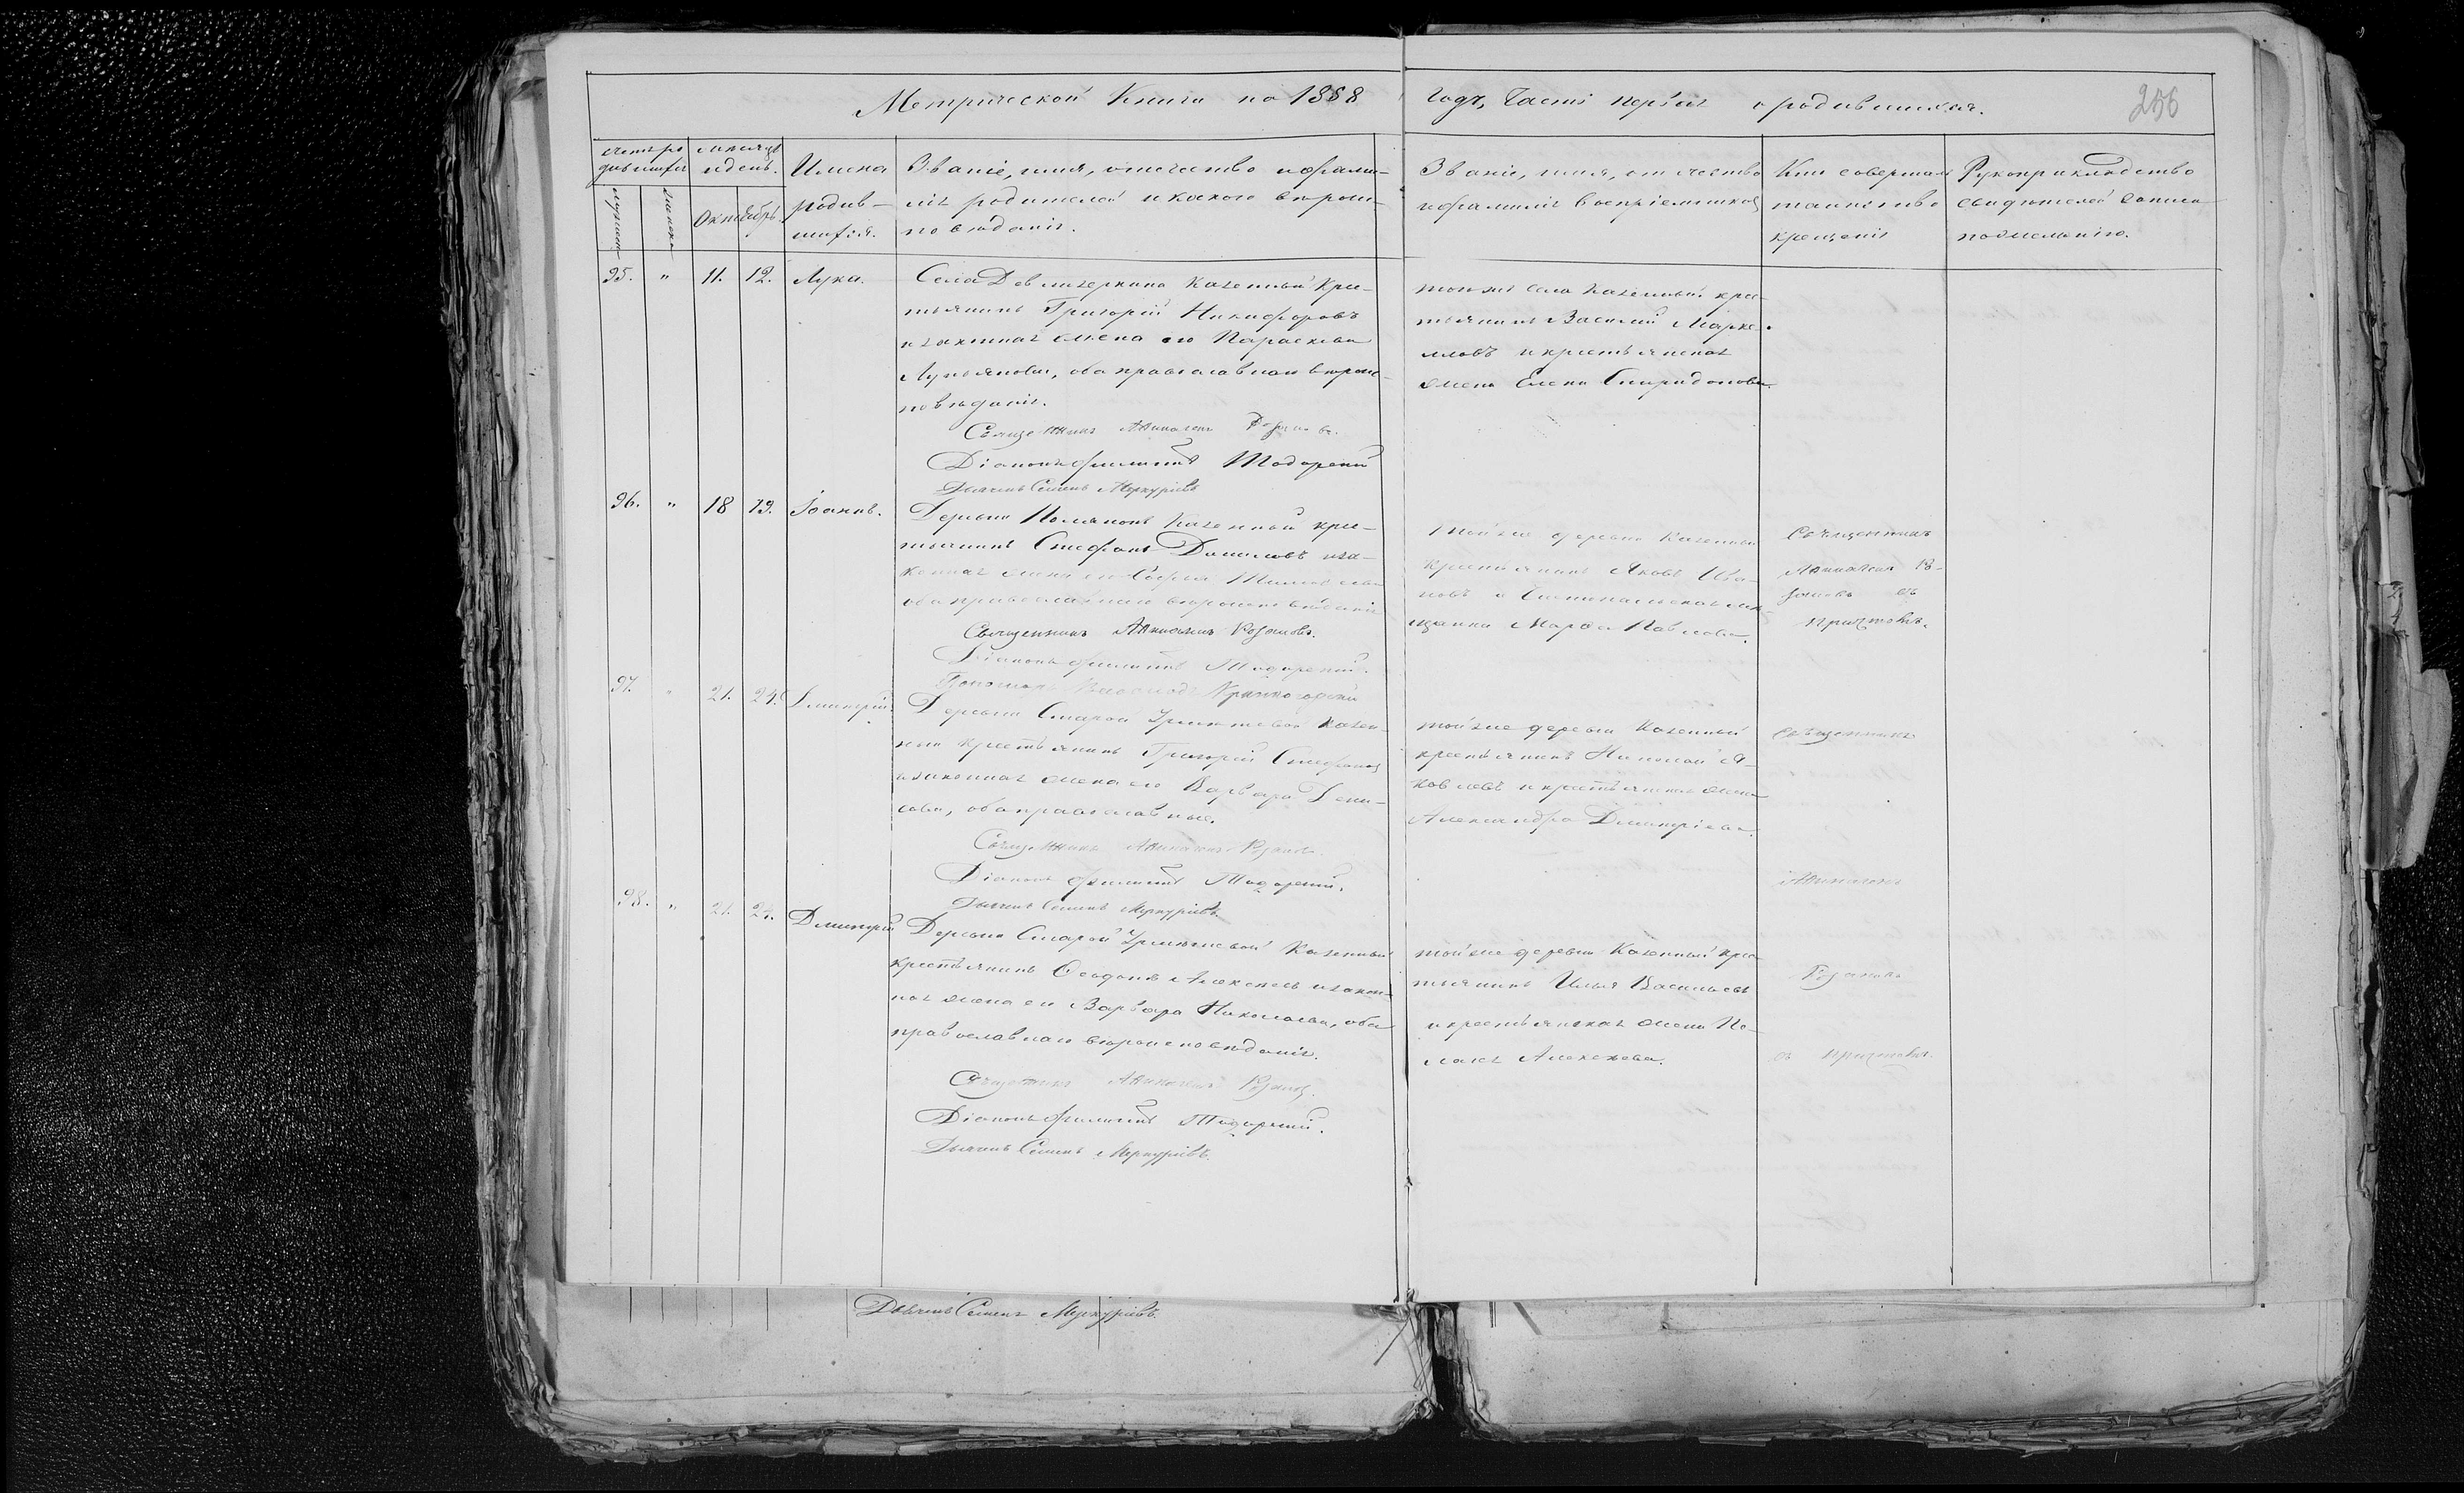 Метрической Книги на 1858 годъ, Часть первая о родившихся.
256
Счетъ ро
дившихся
Мужеска
Женска
Мѣсяцъ
и день.
Октябрь
Имена
родив-
шихся.
Званіе, имя, отчество и фами-
лія родителей и какого вѣрои-
повѣданія.
Званіе, имя, отчество
и фамилія воспріемниковъ
Кто совершалъ
таинство
крещенія
Рукоприкладство
свидѣтелей записи
по желанію.
95. " 11. 12. Лука.
Села Девлизеркина Казенный Кре-
стьянинъ Григорій Никифоровъ
и законная жена его Параскева
Лукьянова, оба православнаго вѣроис-
повѣданія.
Священникъ Аѳиногенъ Розановъ.
Діаконъ Филиппъ
Дьячекъ Семенъ Меркурьевъ
тогоже села казенный кре-
стьянинъ Василий Марке-
лловъ и крестьянская
жена Елена Спиридонова.
96. " 18 19. Іоаннъ.
Деревни Казенный кре-
стьянинъ Стефанъ Даниловъ и за-
конная жена его Софья
оба православнаго вѣроисповѣданія
Священникъ Аѳиногенъ Розановъ.
Діаконъ Филиппъ
Пономарь
тойже деревни Казенный
крестьянинъ Яковъ Ива-
новъ и мѣ-
щанка Марѳа Павлова.
Священникъ
Аѳиногенъ Ро-
зановъ съ
причтомъ.
97. " 21. 24. Димитрій.
Деревни Старой Урметевой Казен-
ный крестьянинъ Григорій Стефановъ
и законная жена его Варвара Дени-
сова, оба православные.
Священникъ Аѳиногенъ Розановъ.
Діаконъ Филиппъ
Дьячекъ Семенъ Меркурьевъ.
тойже деревни Казенный
крестьянинъ Николай Я-
ковлевъ и крестьянская жена
Александра Димитріева.
Священникъ
98. " 21. 24. Димитрій
Деревни Старой Урметевой Казенный
крестьянинъ Алексѣевъ и закон-
ная жена его Варвара Николаева, оба
православнаго вѣроисповѣданія.
Священникъ Аѳиногенъ Розановъ.
Діаконъ Филиппъ
Дьячекъ Семенъ Меркурьевъ.
тойже деревни Казенный кре-
стьянинъ Илья Васильевъ
и крестьянская жена Пе-
лагія Алексѣева.
Аѳиногенъ
Розановъ
съ причтомъ.
Дьячекъ Семенъ Меркурьевъ.